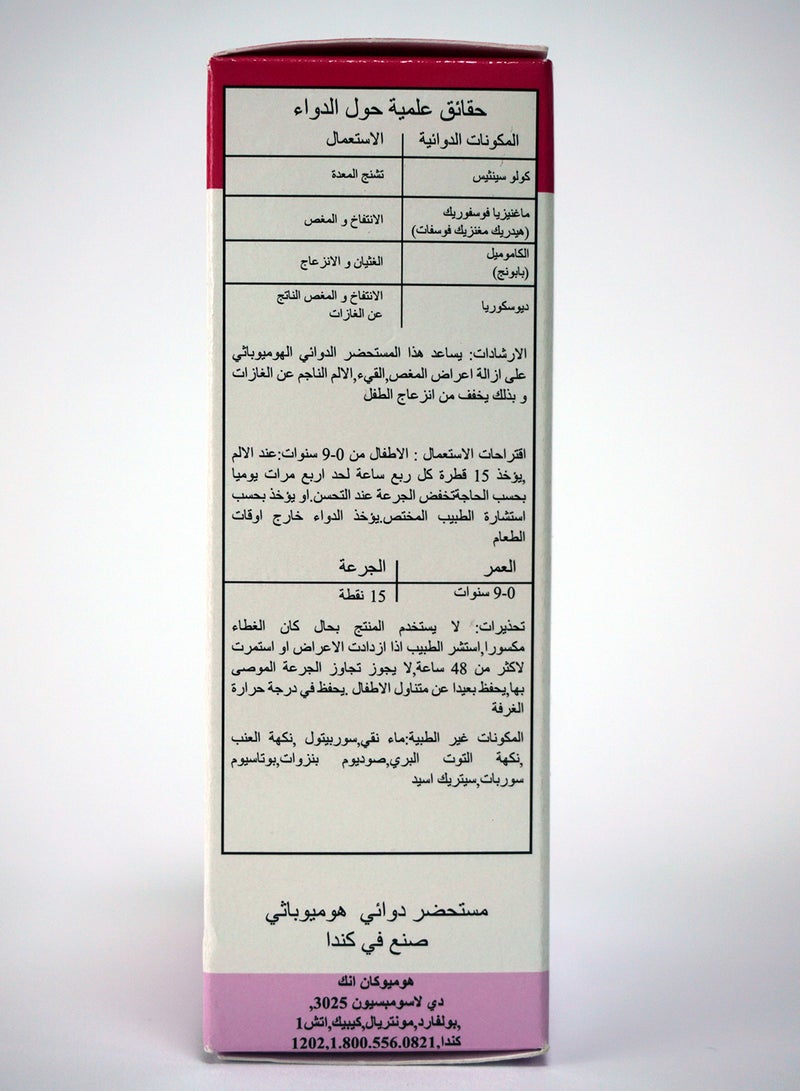 حقائق علمية حول الدواء
المكونات الدوائية | الاستعمال
كولو سينثيس | تشنج المعدة
ماغنيزيا فوسفوريك
(هيدريك مغنزيك فوسفات) | الانتفاخ و المغص
الكاموميل
(بابونج) | الغثيان و الانزعاج
ديوسكوريا | الانتفاخ و المغص الناتج
عن الغازات
الارشادات: يساعد هذا المستحضر الدوائي الهوميوباثي
على ازالة اعراض المغص,القيء,الالم الناجم عن الغازات
و بذلك يخفف من انزعاج الطفل
اقتراحات الاستعمال : الاطفال من 0-9 سنوات:عند الالم
,يؤخذ 15 قطرة كل ربع ساعة لحد اربع مرات يوميا
بحسب الحاجةتخفض الجرعة عند التحسن.او يؤخذ بحسب
استشارة الطبيب المختص.يؤخذ الدواء خارج اوقات
الطعام
العمر | الجرعة
0-9 سنوات | 15 نقطة
تحذيرات: لا يستخدم المنتج بحال كان الغطاء
مكسورا,استشر الطبيب اذا ازدادت الاعراض او استمرت
لاكثر من 48 ساعة,لا يجوز تجاوز الجرعة الموصى
بها,يحفظ بعيدا عن متناول الاطفال .يحفظ في درجة حرارة
الغرفة
المكونات غير الطبية:ماء نقي,سوربيتول ,نكهة العنب
,نكهة التوت البري,صوديوم بنزوات,بوتاسيوم
سوربات,سيتريك اسيد
مستحضر دوائي هوميوباثي
صنع في كندا
هوميوكان انك
دي لاسومبسيون 3025,
,بولفارد,مونتريال,كيبيك,اتش1
كندا,1202,1.800.556.0821